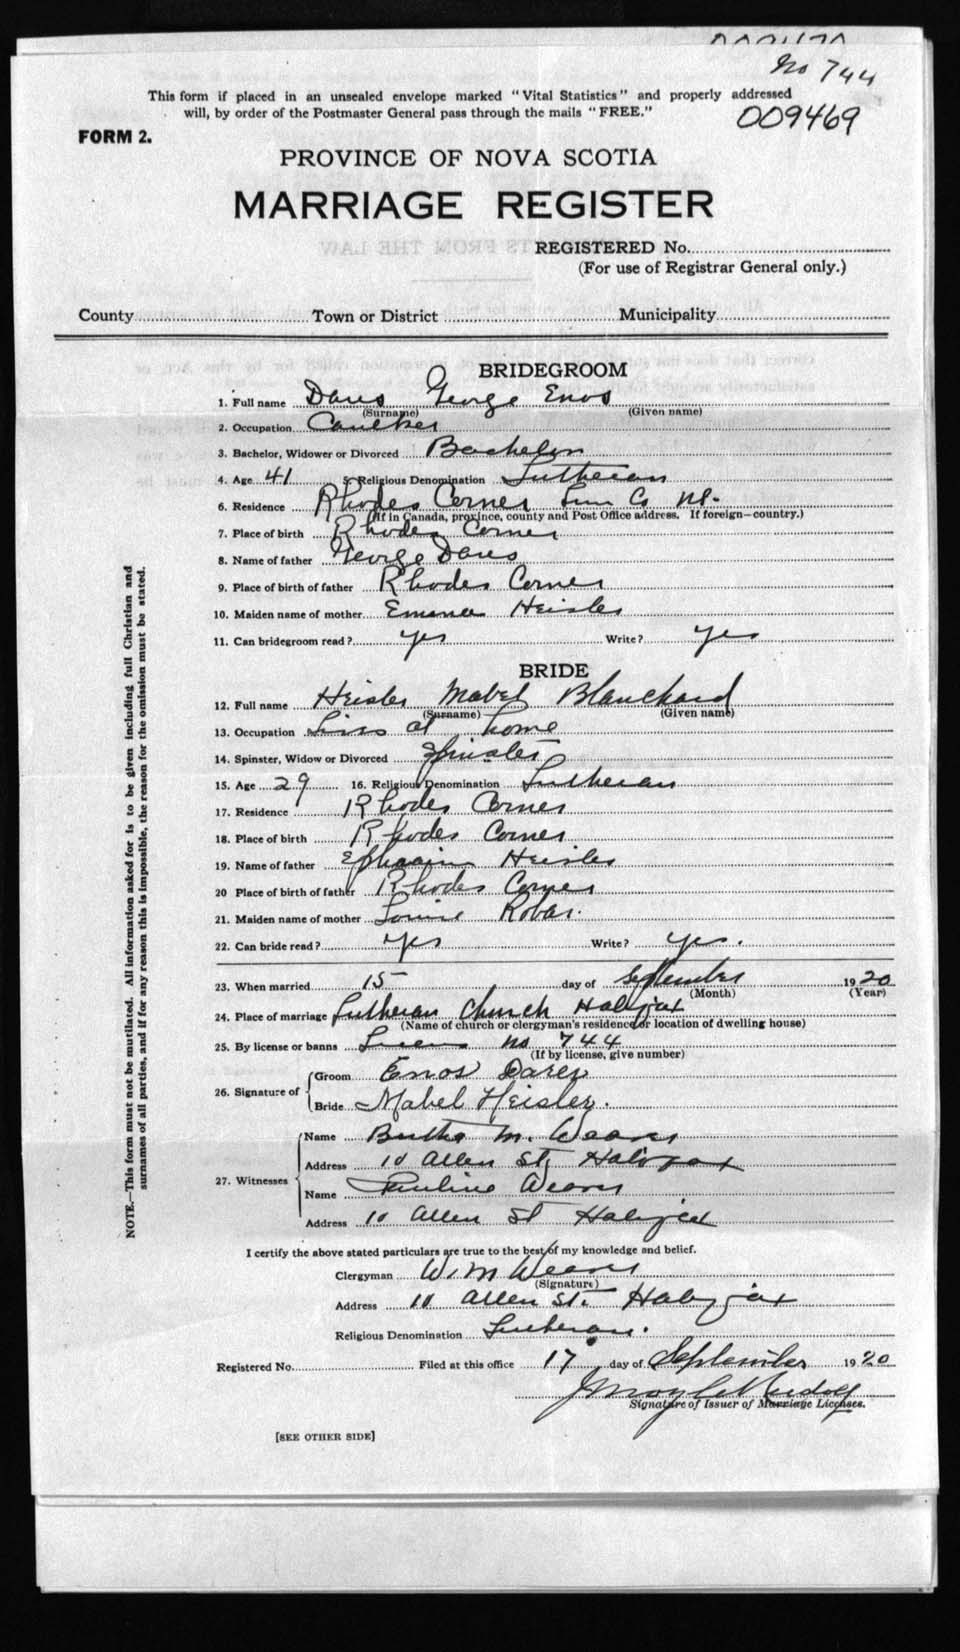 No 744
This form if placed in an unsealed envelope marked "Vital Statistics" and properly addressed
will, by order of the Postmaster General pass through the mails "FREE."
009469
FORM 2.
PROVINCE OF NOVA SCOTIA
MARRIAGE REGISTER
REGISTERED No.
(For use of Registrar General only.)
County Town or District Municipality
BRIDEGROOM
1. Full name Dares George Enos
(Surname) (Given name)
2. Occupation Caulker
3. Bachelor, Widower or Divorced Bachelor
4. Age 41 5. Religious Denomination Lutheran
6. Residence Rhodes Corner Lun Co NS.
(If in Canada, province, county and Post Office address. If foreign—country.)
7. Place of birth Rhodes Corner
8. Name of father George Dares
9. Place of birth of father Rhodes Corner
10. Maiden name of mother Emma Heisler
11. Can bridegroom read? yes Write? yes
BRIDE
12. Full name Heisler Mabel Blanchard
(Surname) (Given name)
13. Occupation Lives at home
14. Spinster, Widow or Divorced Spinster
15. Age 29 16. Religious Denomination Lutheran
17. Residence Rhodes Corner
18. Place of birth Rhodes Corner
19. Name of father Ephraim Heisler
20 Place of birth of father Rhodes Corner
21. Maiden name of mother Louise Robar.
22. Can bride read? yes Write? yes.
23. When married 15 day of September 1920
(Month) (Year)
24. Place of marriage Lutheran Church Halifax
(Name of church or clergyman's residence or location of dwelling house)
25. By license or banns License no 744
(If by license, give number)
26. Signature of Groom Enos Dares
Bride Mabel Heisler.
27. Witnesses Name Bertha M. Weaver
Address 10 Allen St, Halifax
Name Pauline Weaver
Address 10 Allen St Halifax
I certify the above stated particulars are true to the best of my knowledge and belief.
Clergyman W. M Weaver
(Signature)
Address 10 Allen St. Halifax
Religious Denomination Lutheran.
Registered No. Filed at this office 17 day of September 1920
Signature of Issuer of Marriage Licenses.
[SEE OTHER SIDE]
NOTE.—This form must not be mutilated. All information asked for is to be given including full Christian and
surnames of all parties, and if for any reason this is impossible, the reason for the omission must be stated.